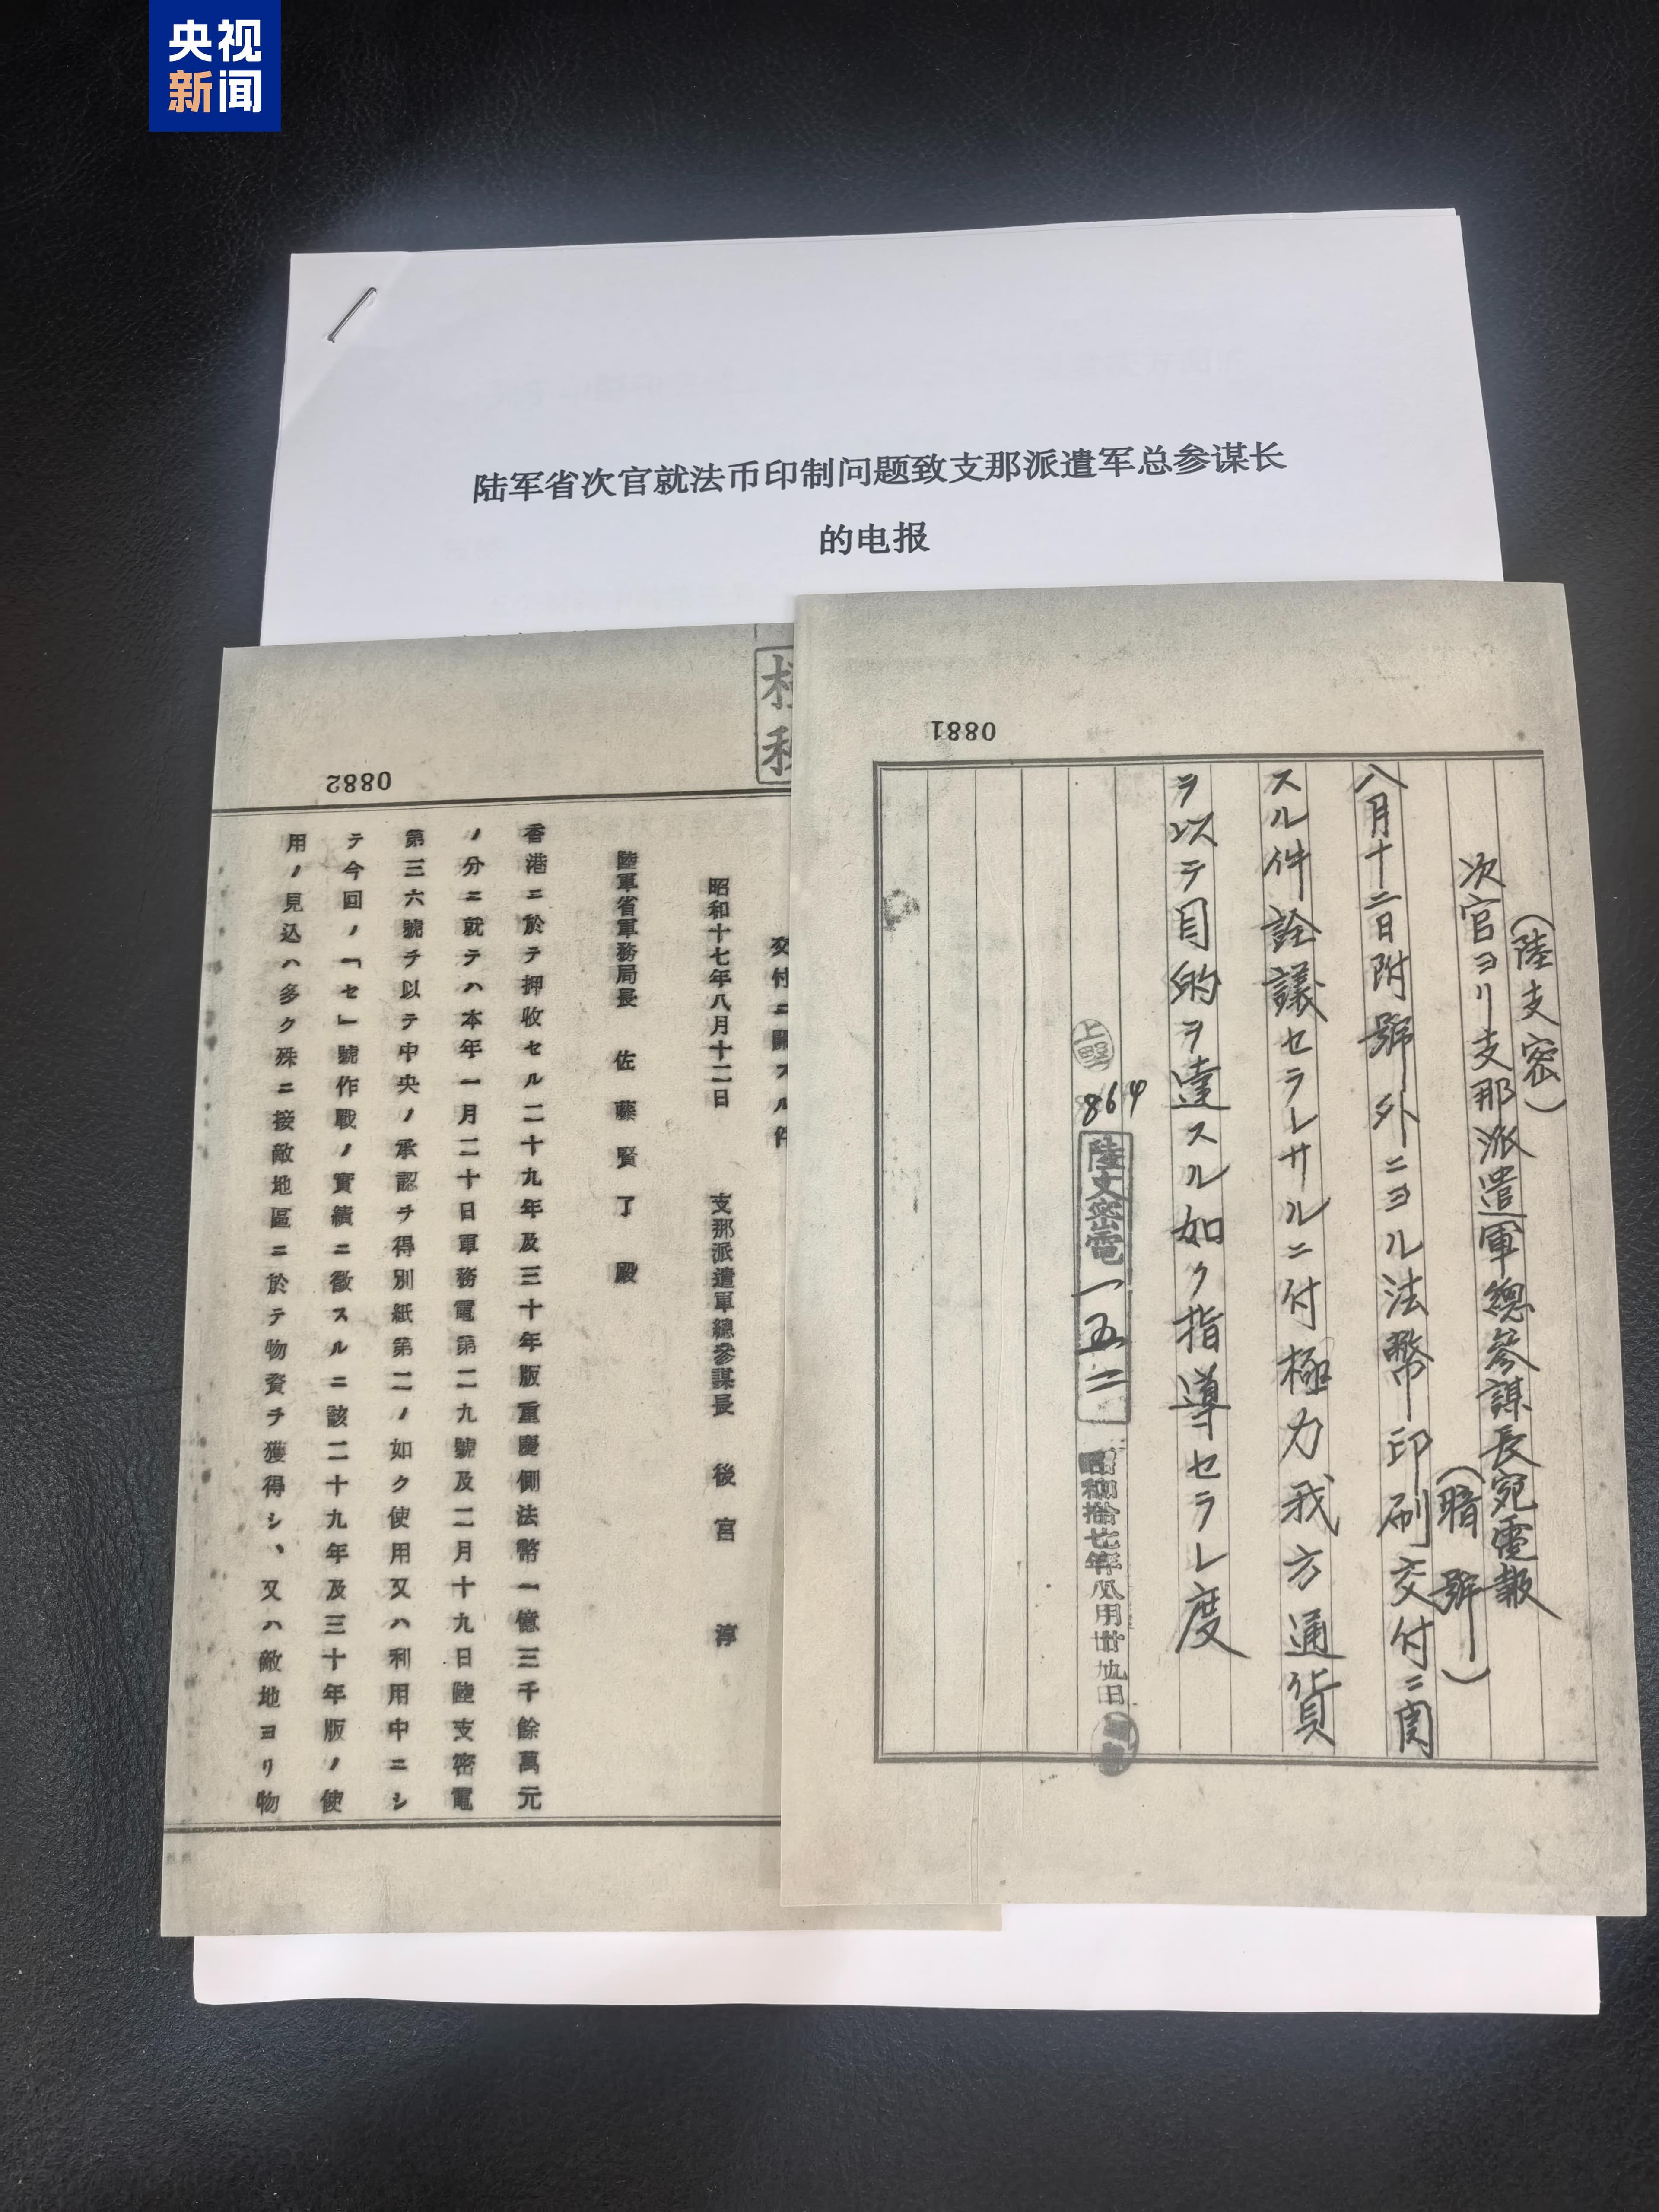 央视
新闻
陆军省次官就法币印制问题致支那派遣军总参谋长
的电报
0881
(陸支密)
次官ヨリ支那派遣軍總參謀長宛電報
(暗號)
八月十二日附號外ニヨル法幣印刷交付ニ関
スル件詮議セラレサルニ付極力我方通貨
ヲ以テ目的ヲ達スル如ク指導セラレ度
上野
864
陸支密電一五二
昭和拾七年八月廿九日
0882
交付ニ關スル件
昭和十七年八月十二日 支那派遣軍總參謀長 後宮淳
陸軍省軍務局長 佐藤賢了殿
香港ニ於テ押收セル二十九年及三十年版重慶側法幣一億三千餘萬元
ノ分ニ就テハ本年一月二十日軍務電第二九號及二月十九日陸支密電
第三六號ヲ以テ中央ノ承認ヲ得別紙第二ノ如ク使用又ハ利用中ニシ
テ今回ノ「セ」號作戰ノ實績ニ徵スルニ該二十九年及三十年版ノ使
用ノ見込ハ多ク殊ニ接敵地區ニ於テ物資ヲ獲得シ、又ハ敵地ヨリ物